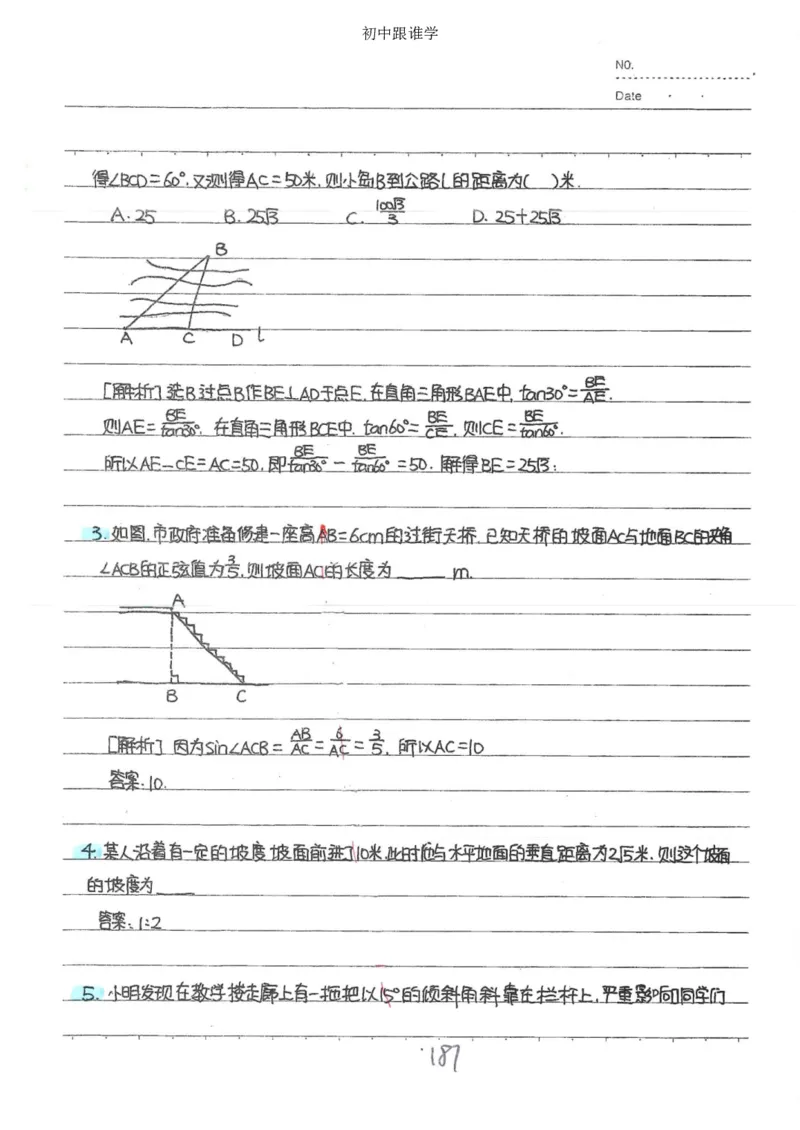 初中跟谁学
NO.
Date
得∠BCD=60°,又测得AC=50米,则小岛B到公路l的距离为( )米.
A.25 B.25√3 C. 100√3/3 D. 25+25√3
B
A C D l
[解析]选B过点B作BE⊥AD于点E,在直角三角形BAE中,tan30°=BE/AE.
则AE=BE/tan30°. 在直角三角形BCE中. tan60°=BE/CE, 则CE=BE/tan60°.
所以AE-CE=AC=50,即BE/tan30°-BE/tan60°=50.解得BE=25√3;
3.如图,市政府准备修建一座高AB=6cm的过街天桥,已知天桥的坡面AC与地面BC的夹角
∠ACB的正弦值为3/5,则坡面AC的长度为_____m.
A
B C
[解析]因为sin∠ACB=AB/AC=6/AC=3/5. 所以AC=10
答案:10.
4.某人沿着有一定的坡度坡面前进了10米,此时他与水平地面的垂直距离为2√5米.则这个坡面
的坡度为____
答案:1:2
5.小明发现在教学楼走廊上有一拖把以15°的倾斜角斜靠在栏杆上,严重影响同学们
187